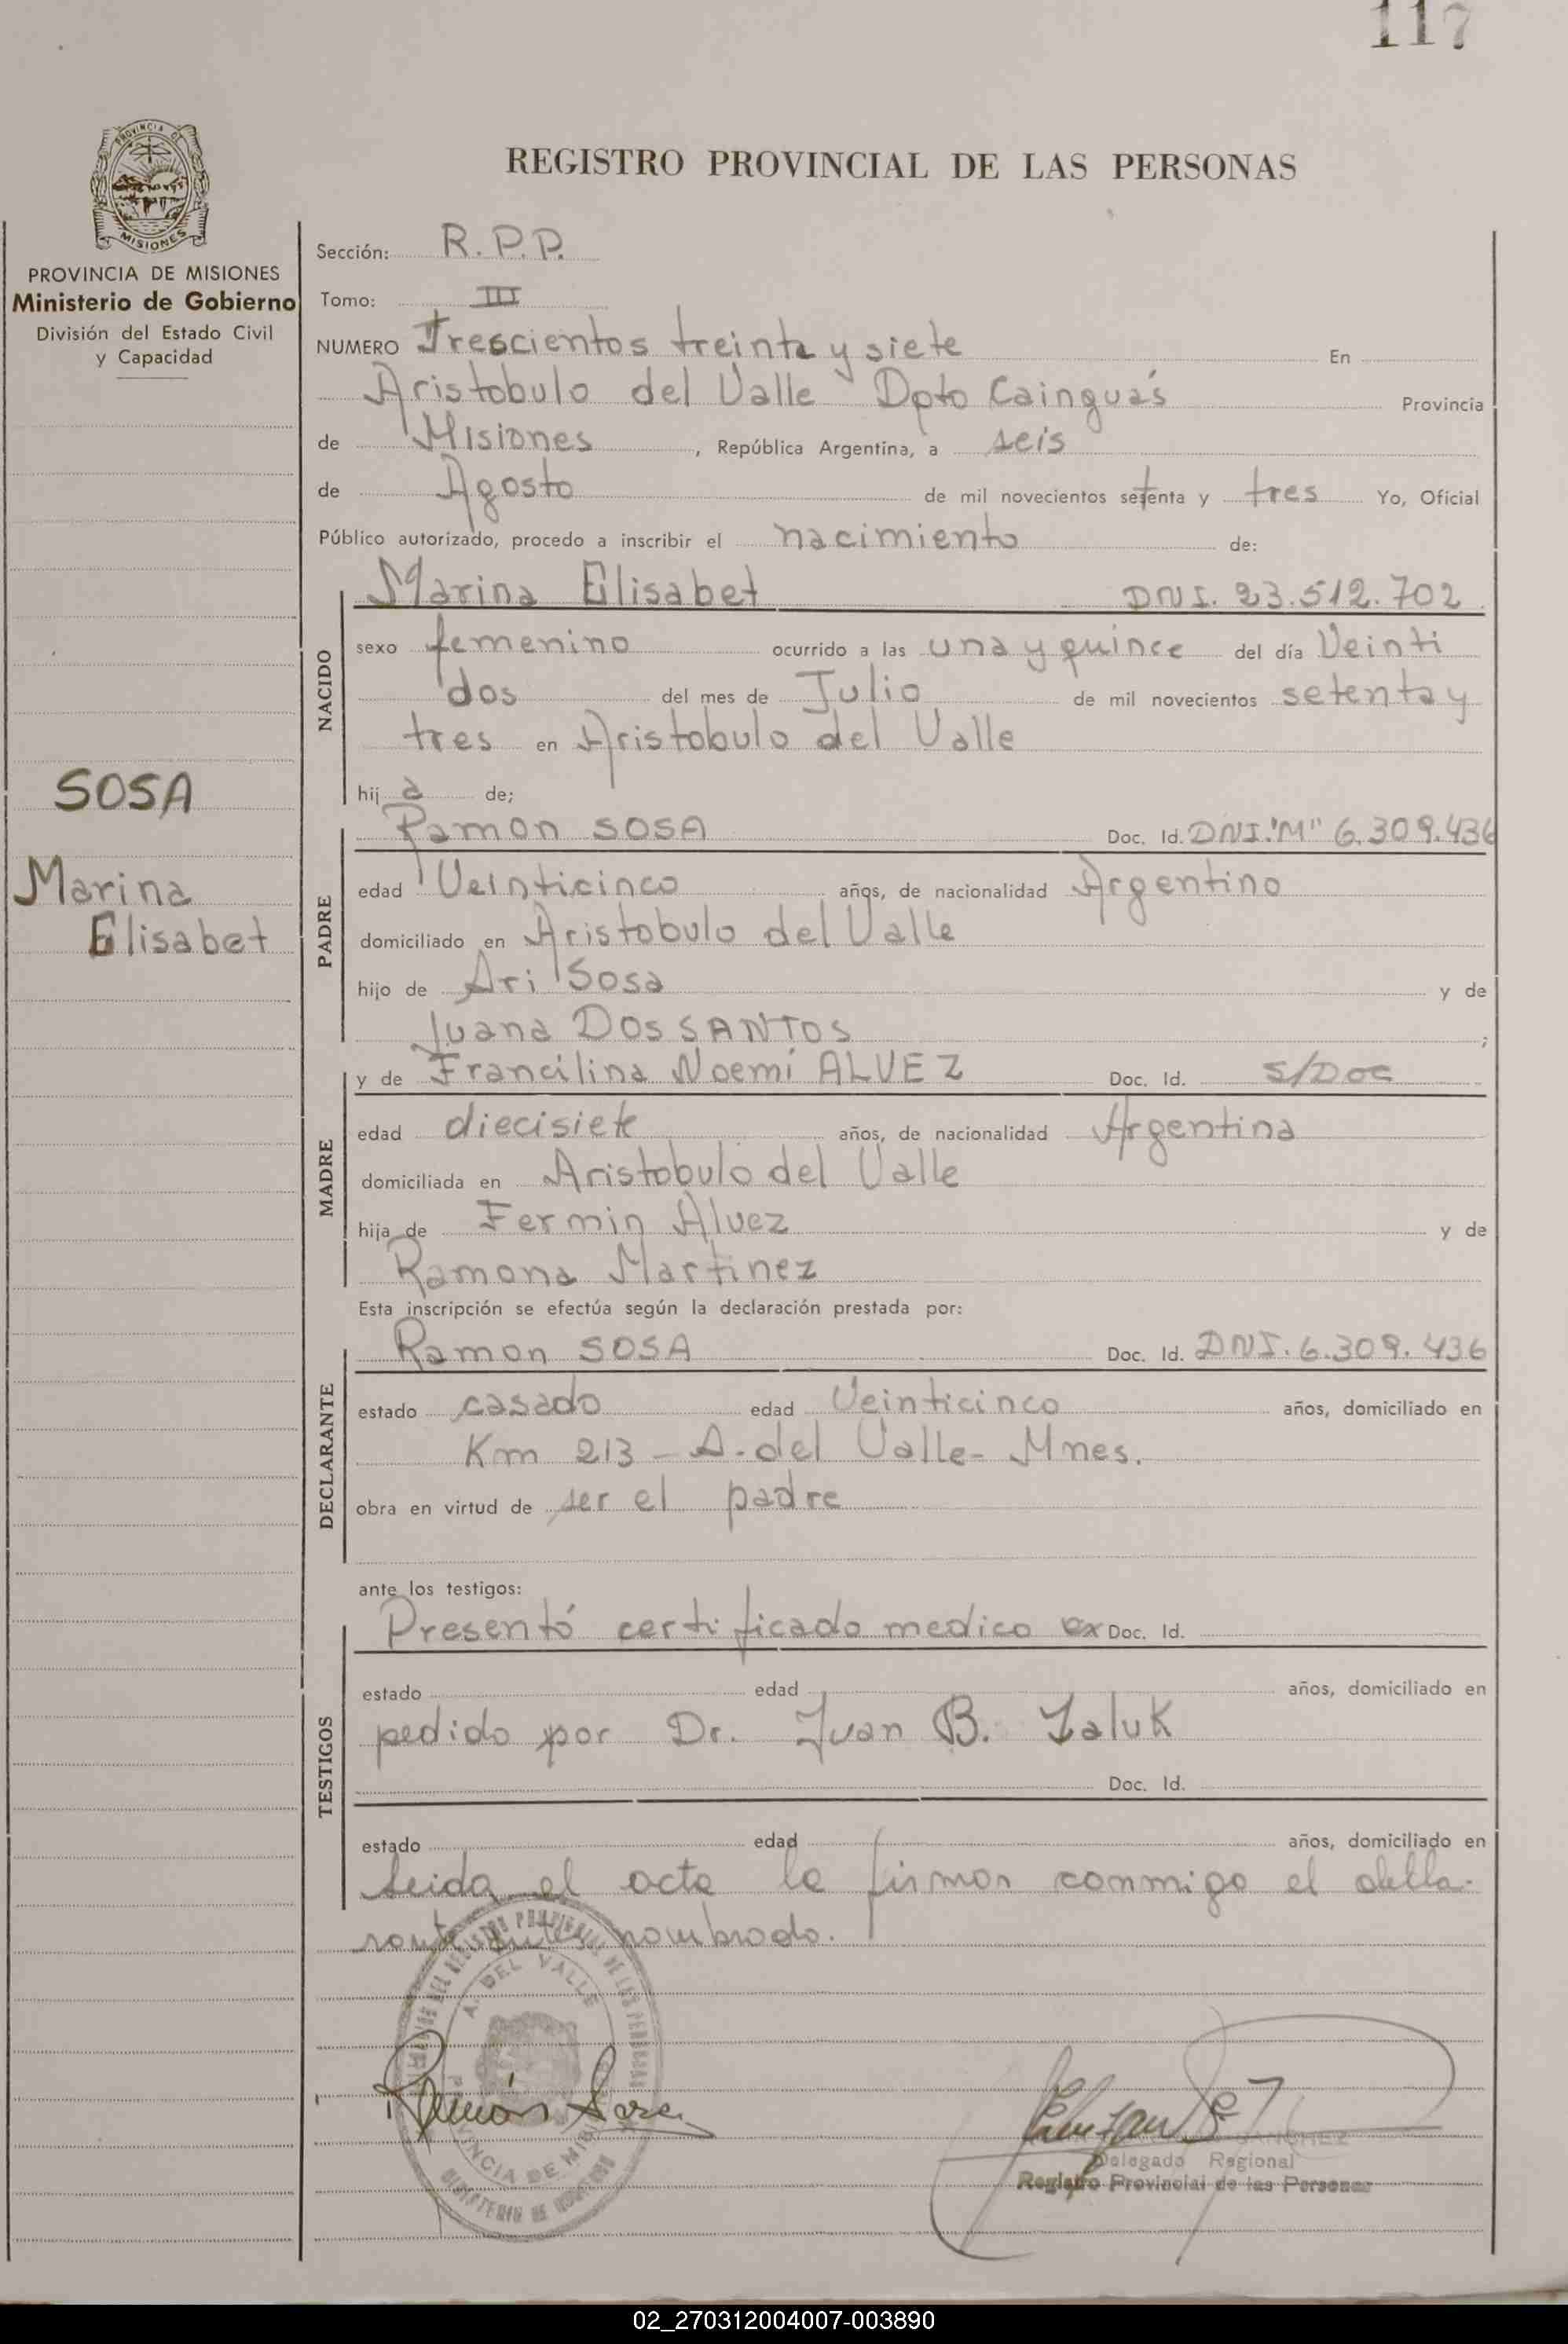 117
PROVINCIA DE
MISIONES
PROVINCIA DE MISIONES
Ministerio de Gobierno
División del Estado Civil
y Capacidad
SOSA
Marina
Elisabet
REGISTRO PROVINCIAL DE LAS PERSONAS
Sección: R.P.P.
Tomo: III
NUMERO Trescientos treinta y siete En
Aristobulo del Valle Dpto Cainguás Provincia
de Misiones, República Argentina, a seis
de Agosto de mil novecientos setenta y tres Yo, Oficial
Público autorizado, procedo a inscribir el nacimiento de:
NACIDO
Marina Elisabet DNI. 23.512.702
sexo femenino ocurrido a las una y quince del día Veinti
dos del mes de Julio de mil novecientos setenta y
tres en Aristobulo del Valle
hij a de;
PADRE
Ramon SOSA Doc. Id. DNI."M" 6.309.436
edad Veinticinco años, de nacionalidad Argentino
domiciliado en Aristobulo del Valle
hijo de Ari Sosa y de
Juana DOS SANTOS ;
MADRE
y de Francilina Noemí ALVEZ Doc. Id. S/Doc
edad diecisiete años, de nacionalidad Argentina
domiciliada en Aristobulo del Valle
hija de Fermin Alvez y de
Ramona Martinez
Esta inscripción se efectúa según la declaración prestada por:
DECLARANTE
Ramon SOSA Doc. Id. DNI. 6.309.436
estado casado edad Veinticinco años, domiciliado en
Km 213 - A. del Valle - Mnes.
obra en virtud de ser el padre
ante los testigos:
TESTIGOS
Presentó certificado medico ex Doc. Id.
estado edad años, domiciliado en
pedido por Dr. Juan B. Zaluk
Doc. Id.
estado edad años, domiciliado en
Leida el acta la firman conmigo el decla-
rante antes nombrado.
A. DEL VALLE
PROVINCIA DE MISIONES
MINISTERIO DE GOBIERNO
Ramón Sosa
Delegado Regional
Registro Provincial de las Personas
02_270312004007-003890